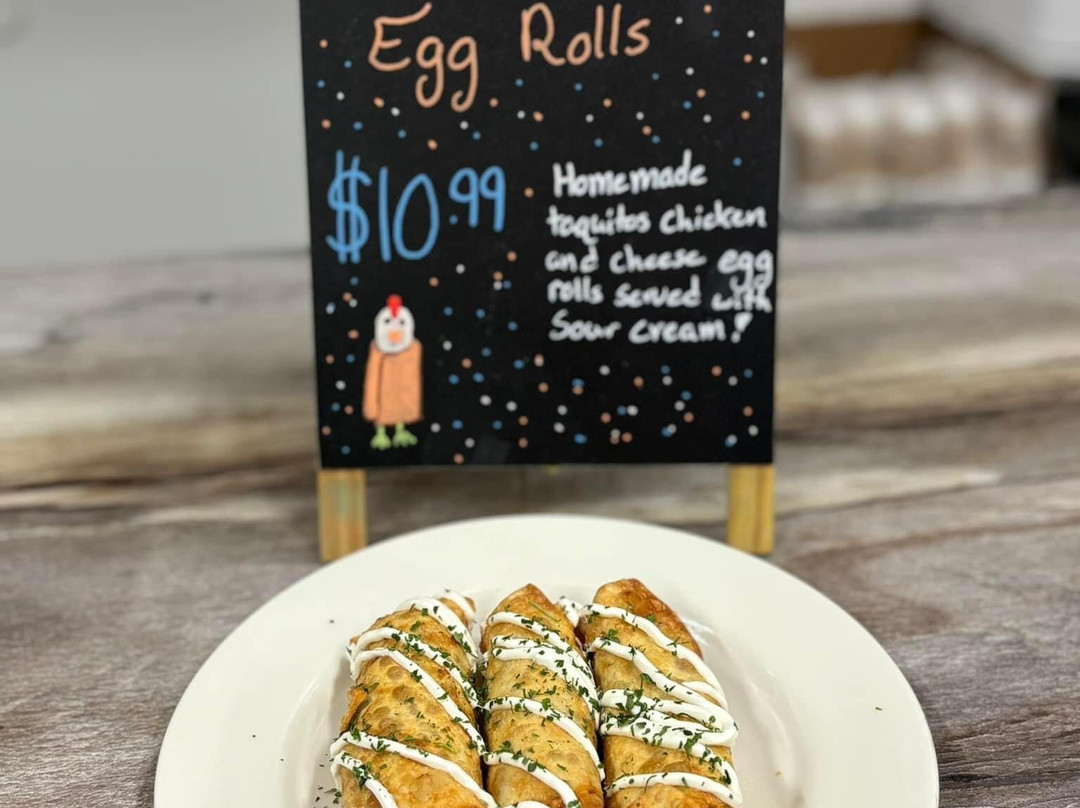 Egg Rolls
$10.99
Homemade
taquitos chicken
and cheese egg
rolls served with
Sour cream!